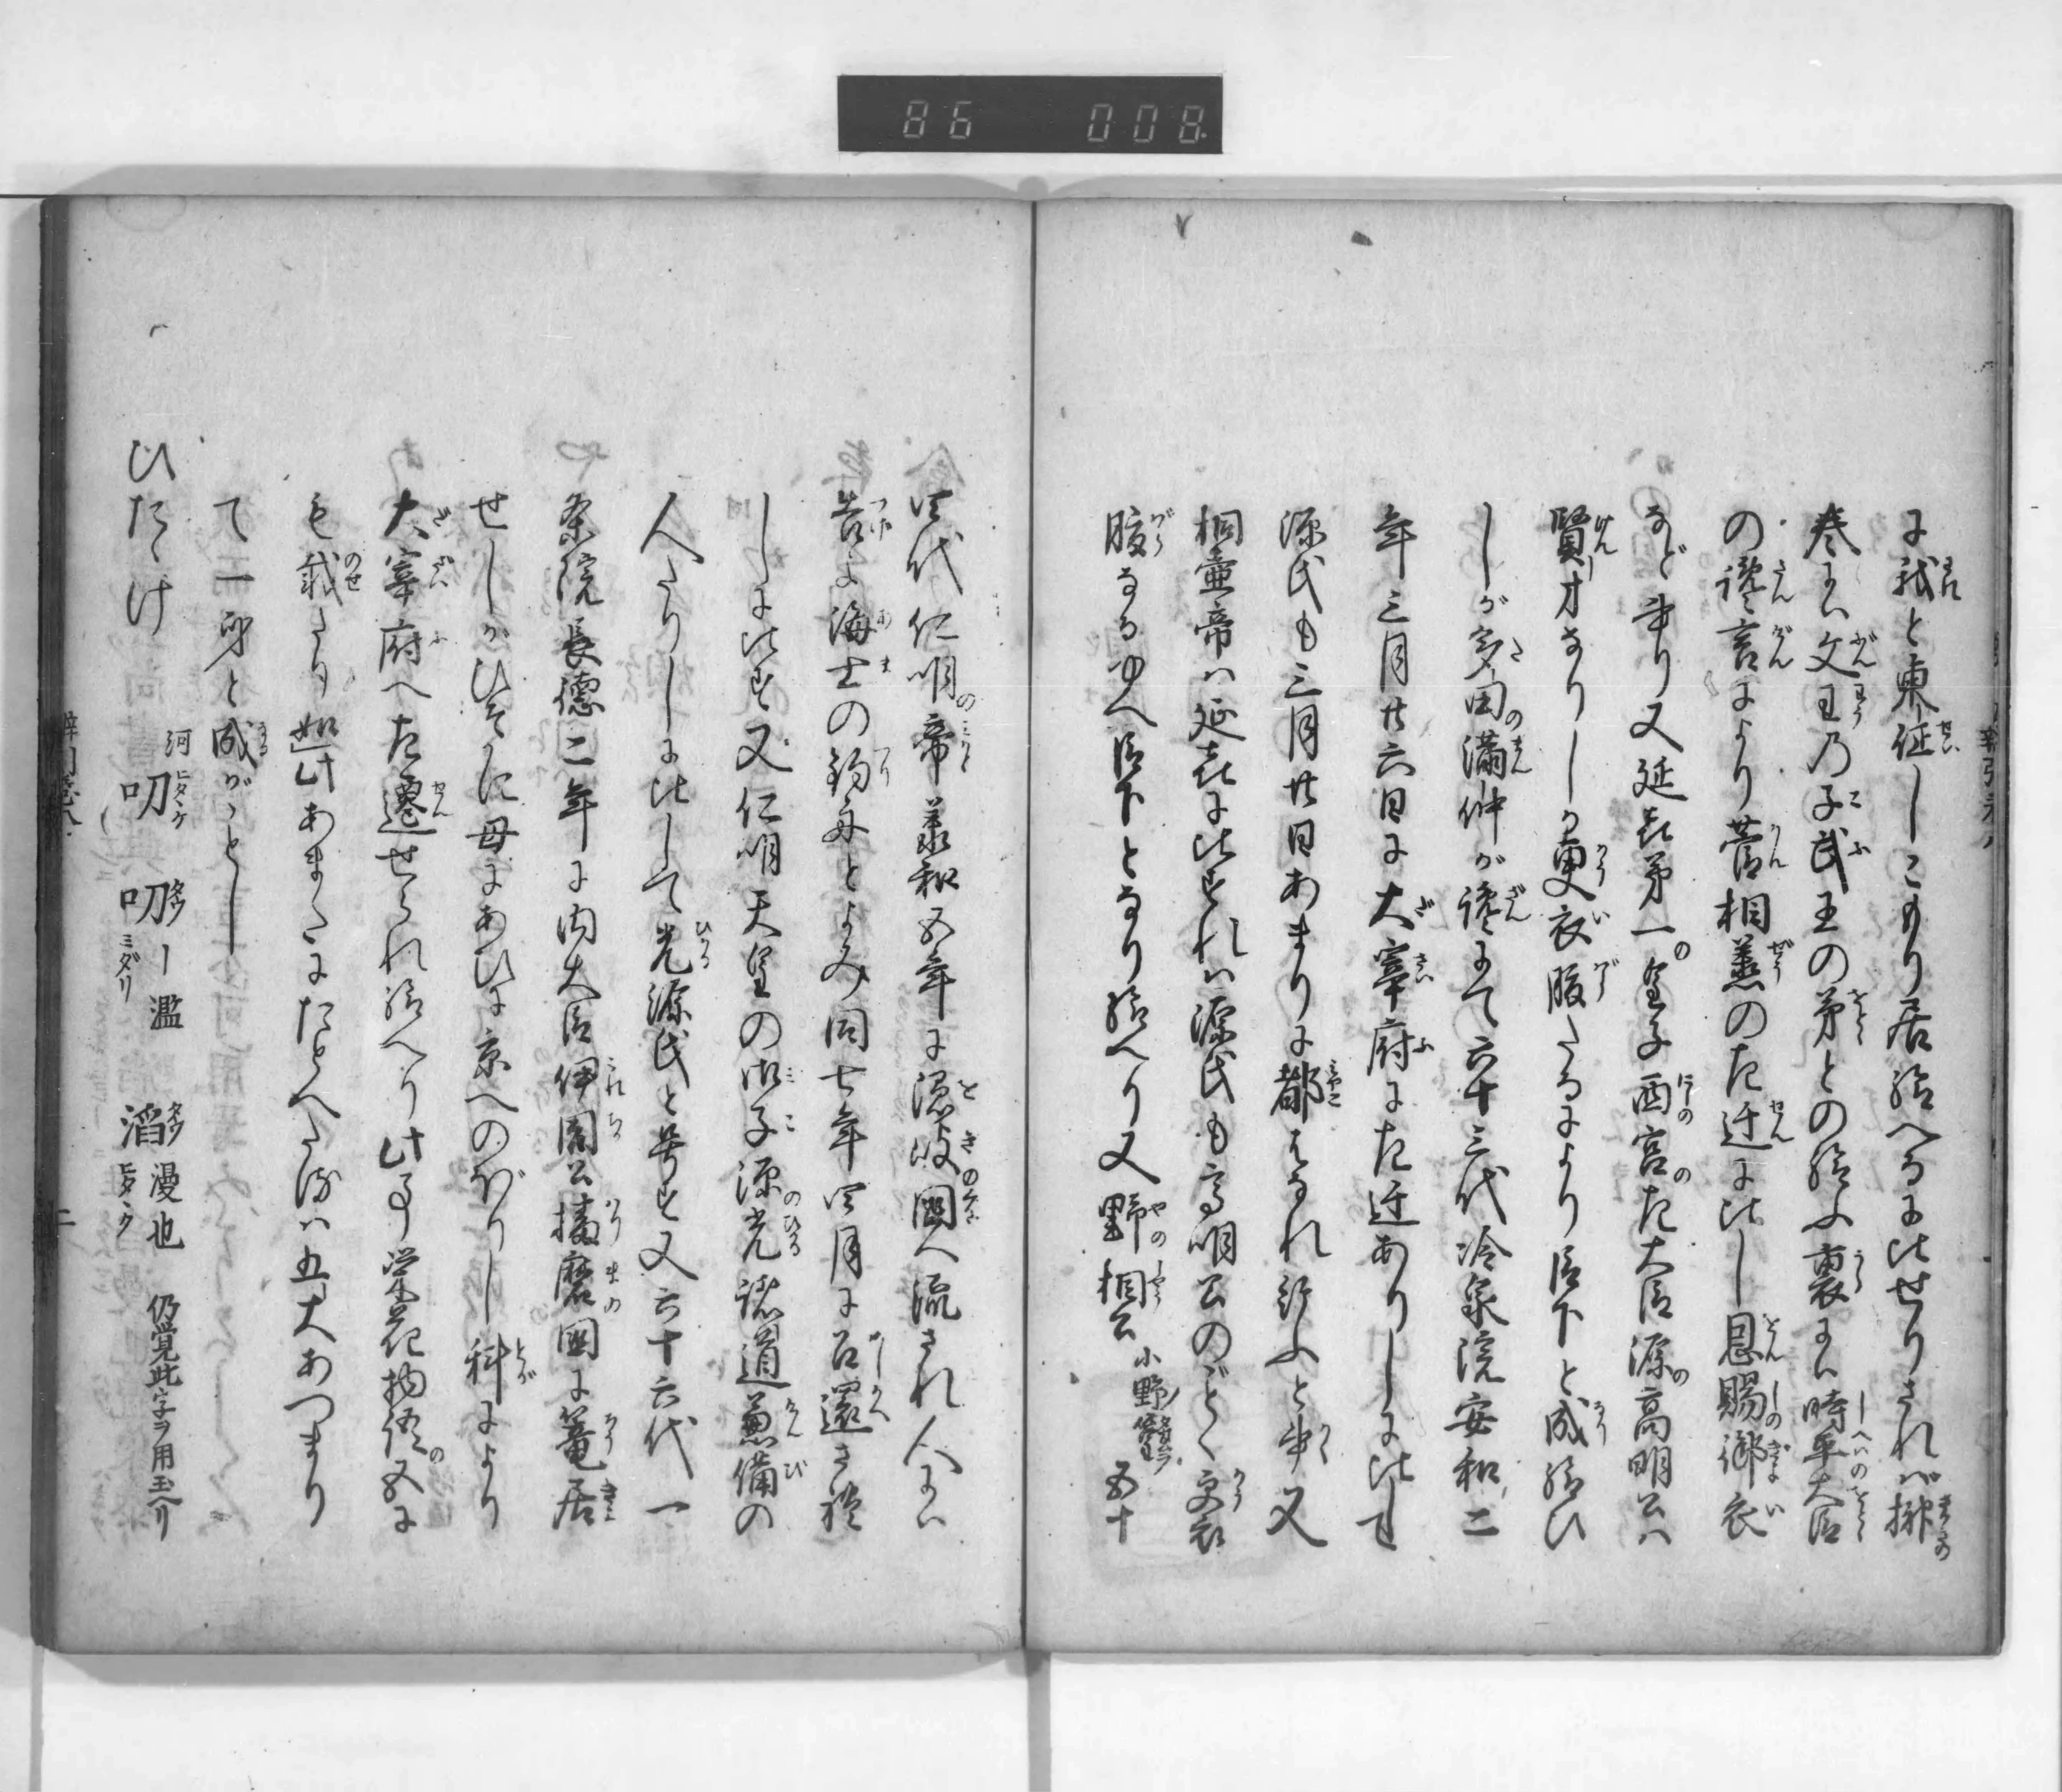 86 008
に我と東征しこもり居給へるに比せりされバ榊
巻にハ文王乃子武王の弟との給ふ裏にハ時平大臣
の讒言により菅相丞の左迁に比し恩賜御衣
など申り又延㐂第一皇子西宮左大臣源高明公ハ
賢才なりしか更衣腹たるにより臣下と成給ひ
しが多田満仲が讒にて六十三代冷泉院安和二
年三月廿六日に大宰府に左迁ありしに比し
源氏も三月廿日あまりに都はなれ給ふと申又
桐壷帝ハ延㐂に比すれハ源氏も高明公のごとく更衣
腹なるゆへ臣下となり給へり又野相公小野篁 五十
四代仁明帝 承和五年に隠岐国へ流され人にハ
告よ海士の釣舟とよみ同七年四月に召還され
しに比す又仁明天皇の御子源光諸道兼備の
人たりしに比して光源氏と号す又六十六代一
条院長徳二年に内大臣伊周公播磨国に篭居
せしがひそかに母にあひに京へのぼりし科により
大宰府へ左遷せられ給へり此事栄花物語の五に
も載たり如此あまたにたとへたるハ五人あつまり
て一身と成がごとし
ひたゝけ 河 叨 ヒタヽケ 叨 ー濫 ミダリ 滔 漫也 ヒタヽク 仍覚此字ヲ用玉ヘリ